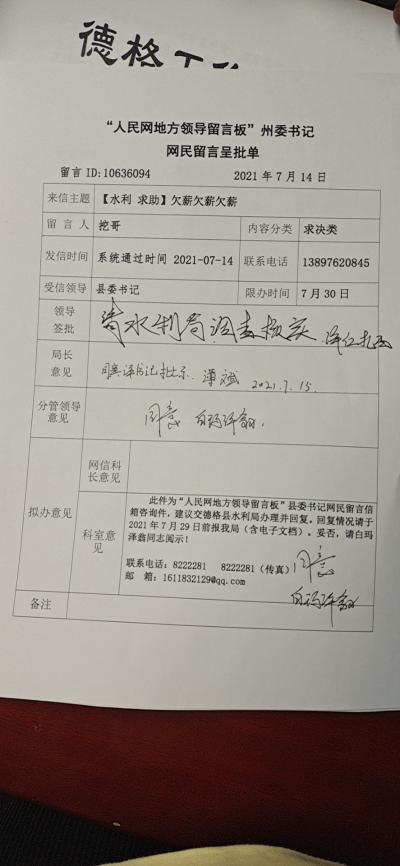 德格
“人民网地方领导留言板”州委书记
网民留言呈批单
留言 ID:10636094 2021 年 7 月 14 日
来信主题 【水利 求助】欠薪欠薪欠薪
留 言 人 挖哥 内容分类 求决类
发信时间 系统通过时间 2021-07-14 联系电话 13897620845
受信领导 县委书记 限办时间 7 月 30 日
领导签批 请水利局调查核实
局长意见 2021.7.15.
分管领导意见 同意 白玛泽翁
拟办意见
网信科长意见
科室意见
此件为“人民网地方领导留言板”县委书记网民留言信
箱咨询件，建议交德格县水利局办理并回复。回复情况请于
2021 年 7 月 29 日前报我局（含电子文档）。妥否，请白玛
泽翁同志阅示！
联系电话：8222281 8222281（传真）
邮 箱：1611832129@qq.com
同意
白玛泽翁
备注